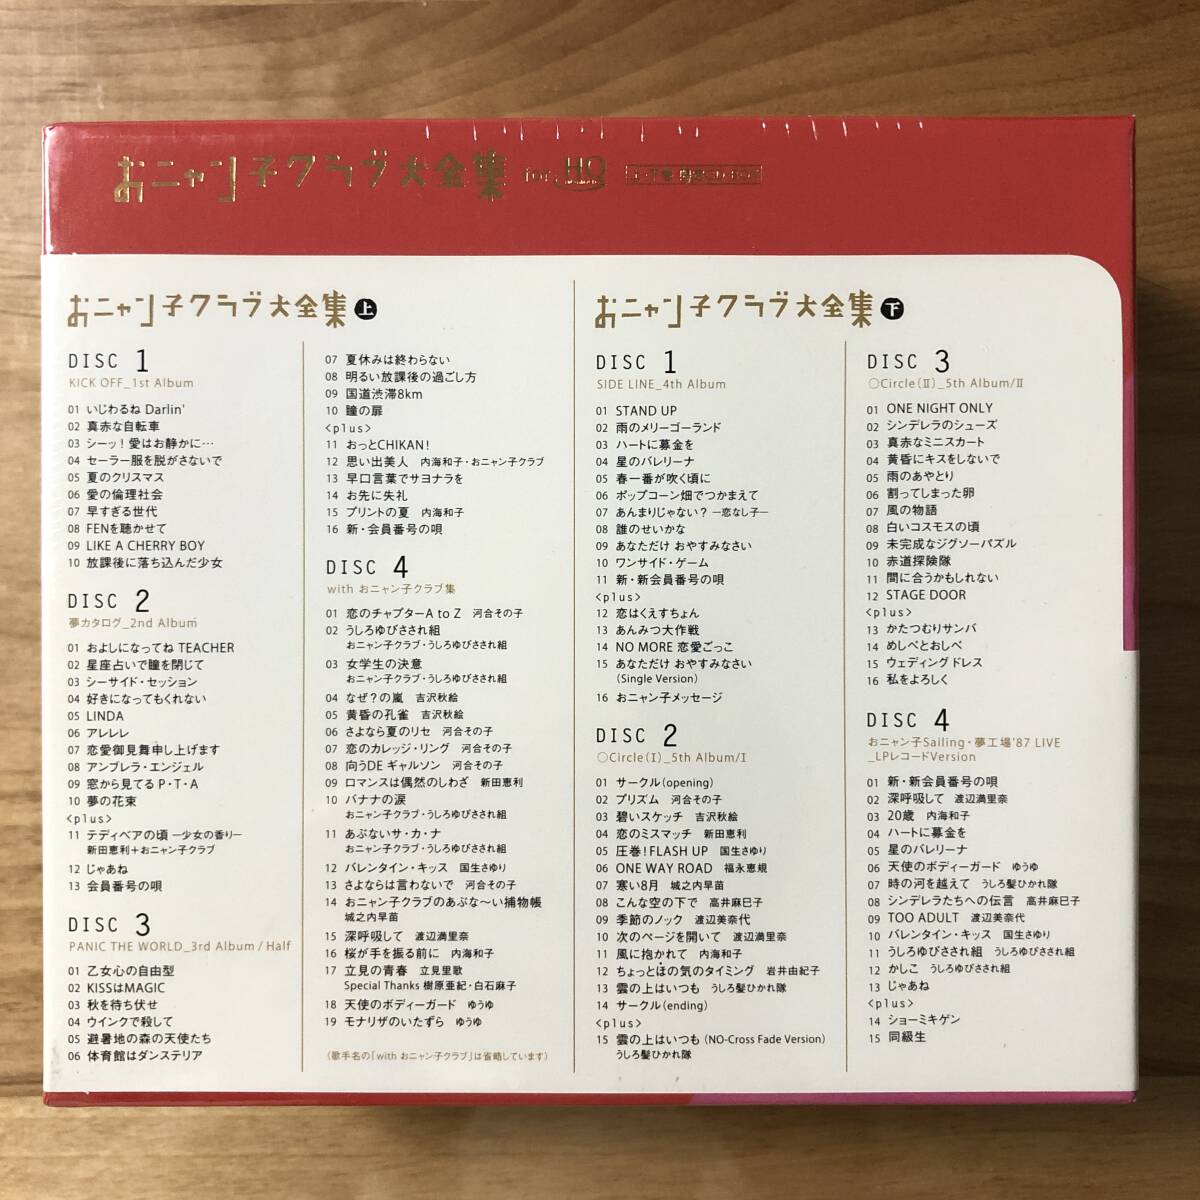 おニャン子クラブ大全集 for HQ
おニャン子クラブ大全集 上
DISC 1
KICK OFF_1st Album
01 いじわるね Darlin'
02 真赤な自転車
03 シーッ!愛はお静かに…
04 セーラー服を脱がさないで
05 夏のクリスマス
06 愛の倫理社会
07 早すぎる世代
08 FENを聴かせて
09 LIKE A CHERRY BOY
10 放課後に落ち込んだ少女
DISC 2
夢カタログ_2nd Album
01 およしになってね TEACHER
02 星座占いで瞳を閉じて
03 シーサイド・セッション
04 好きになってもくれない
05 LINDA
06 アレレレ
07 恋愛御見舞申し上げます
08 アンブレラ・エンジェル
09 窓から見てるP・T・A
10 夢の花束
<plus>
11 テディベアの頃 ―少女の香り―
新田恵利+おニャン子クラブ
12 じゃあね
13 会員番号の唄
DISC 3
PANIC THE WORLD_3rd Album / Half
01 乙女心の自由型
02 KISSはMAGIC
03 秋を待ち伏せ
04 ウインクで殺して
05 避暑地の森の天使たち
06 体育館はダンステリア
07 夏休みは終わらない
08 明るい放課後の過ごし方
09 国道渋滞8km
10 瞳の扉
<plus>
11 おっとCHIKAN!
12 思い出美人 内海和子・おニャン子クラブ
13 早口言葉でサヨナラを
14 お先に失礼
15 プリントの夏 内海和子
16 新・会員番号の唄
DISC 4
with おニャン子クラブ集
01 恋のチャプターA to Z 河合その子
02 うしろゆびさされ組
おニャン子クラブ・うしろゆびさされ組
03 女学生の決意
おニャン子クラブ・うしろゆびさされ組
04 なぜ?の嵐 吉沢秋絵
05 黄昏の孔雀 吉沢秋絵
06 さよなら夏のリセ 河合その子
07 恋のカレッジ・リング 河合その子
08 向うDE ギャルソン 河合その子
09 ロマンスは偶然のしわざ 新田恵利
10 バナナの涙
おニャン子クラブ・うしろゆびさされ組
11 あぶないサ・カ・ナ
おニャン子クラブ・うしろゆびさされ組
12 バレンタイン・キッス 国生さゆり
13 さよならは言わないで 河合その子
14 おニャン子クラブのあぶな〜い捕物帳
城之内早苗
15 深呼吸して 渡辺満里奈
16 桜が手を振る前に 内海和子
17 立見の青春 立見里歌
Special Thanks 樹原亜紀・白石麻子
18 天使のボディーガード ゆうゆ
19 モナリザのいたずら ゆうゆ
(歌手名の「with おニャン子クラブ」は省略しています)
おニャン子クラブ大全集 下
DISC 1
SIDE LINE_4th Album
01 STAND UP
02 雨のメリーゴーランド
03 ハートに募金を
04 星のバレリーナ
05 春一番が吹く頃に
06 ポップコーン畑でつかまえて
07 あんまりじゃない? ―恋なし子―
08 誰のせいかな
09 あなただけ おやすみなさい
10 ワンサイド・ゲーム
11 新・新会員番号の唄
<plus>
12 恋はくえすちょん
13 あんみつ大作戦
14 NO MORE 恋愛ごっこ
15 あなただけ おやすみなさい
(Single Version)
16 おニャン子メッセージ
DISC 2
○Circle(Ⅰ)_5th Album/Ⅰ
01 サークル(opening)
02 プリズム 河合その子
03 碧いスケッチ 吉沢秋絵
04 恋のミスマッチ 新田恵利
05 圧巻!FLASH UP 国生さゆり
06 ONE WAY ROAD 福永恵規
07 寒い8月 城之内早苗
08 こんな空の下で 高井麻巳子
09 季節のノック 渡辺美奈代
10 次のページを開いて 渡辺満里奈
11 風に抱かれて 内海和子
12 ちょっとほの気のタイミング 岩井由紀子
13 雲の上はいつも うしろ髪ひかれ隊
14 サークル(ending)
<plus>
15 雲の上はいつも (NO-Cross Fade Version)
うしろ髪ひかれ隊
DISC 3
○Circle(Ⅱ)_5th Album/Ⅱ
01 ONE NIGHT ONLY
02 シンデレラのシューズ
03 真赤なミニスカート
04 黄昏にキスをしないで
05 雨のあやとり
06 割ってしまった卵
07 風の物語
08 白いコスモスの頃
09 未完成なジグソーパズル
10 赤道探険隊
11 間に合うかもしれない
12 STAGE DOOR
<plus>
13 かたつむりサンバ
14 めしべとおしべ
15 ウェディングドレス
16 私をよろしく
DISC 4
おニャン子Sailing・夢工場'87 LIVE
_LPレコードVersion
01 新・新会員番号の唄
02 深呼吸して 渡辺満里奈
03 20歳 内海和子
04 ハートに募金を
05 星のバレリーナ
06 天使のボディーガード ゆうゆ
07 時の河を越えて うしろ髪ひかれ隊
08 シンデレラたちへの伝言 高井麻巳子
09 TOO ADULT 渡辺美奈代
10 バレンタイン・キッス 国生さゆり
11 うしろゆびさされ組 うしろゆびさされ組
12 かしこ うしろゆびさされ組
13 じゃあね
<plus>
14 ショーミキゲン
15 同級生